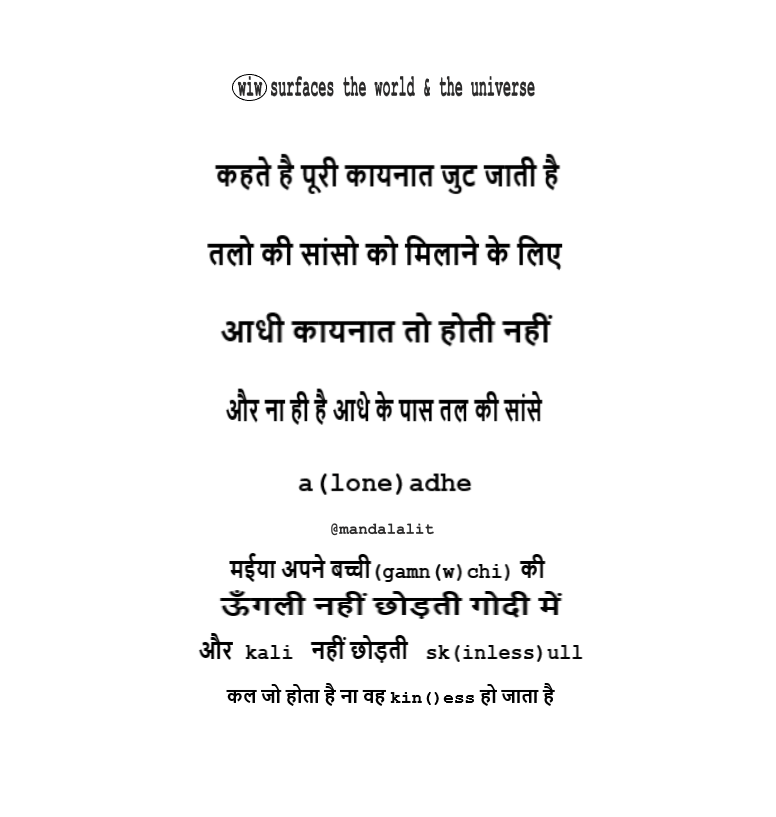 wiw surfaces the world & the universe
कहते है पूरी कायनात जुट जाती है
तलो की सांसो को मिलाने के लिए
आधी कायनात तो होती नहीं
और ना ही है आधे के पास तल की सांसे
a(lone)adhe
@mandalalit
मईया अपने बच्ची(gamn(w)chi) की
ऊँगली नहीं छोड़ती गोदी में
और kali नहीं छोड़ती sk(inless)ull
कल जो होता है ना वह kin()ess हो जाता है